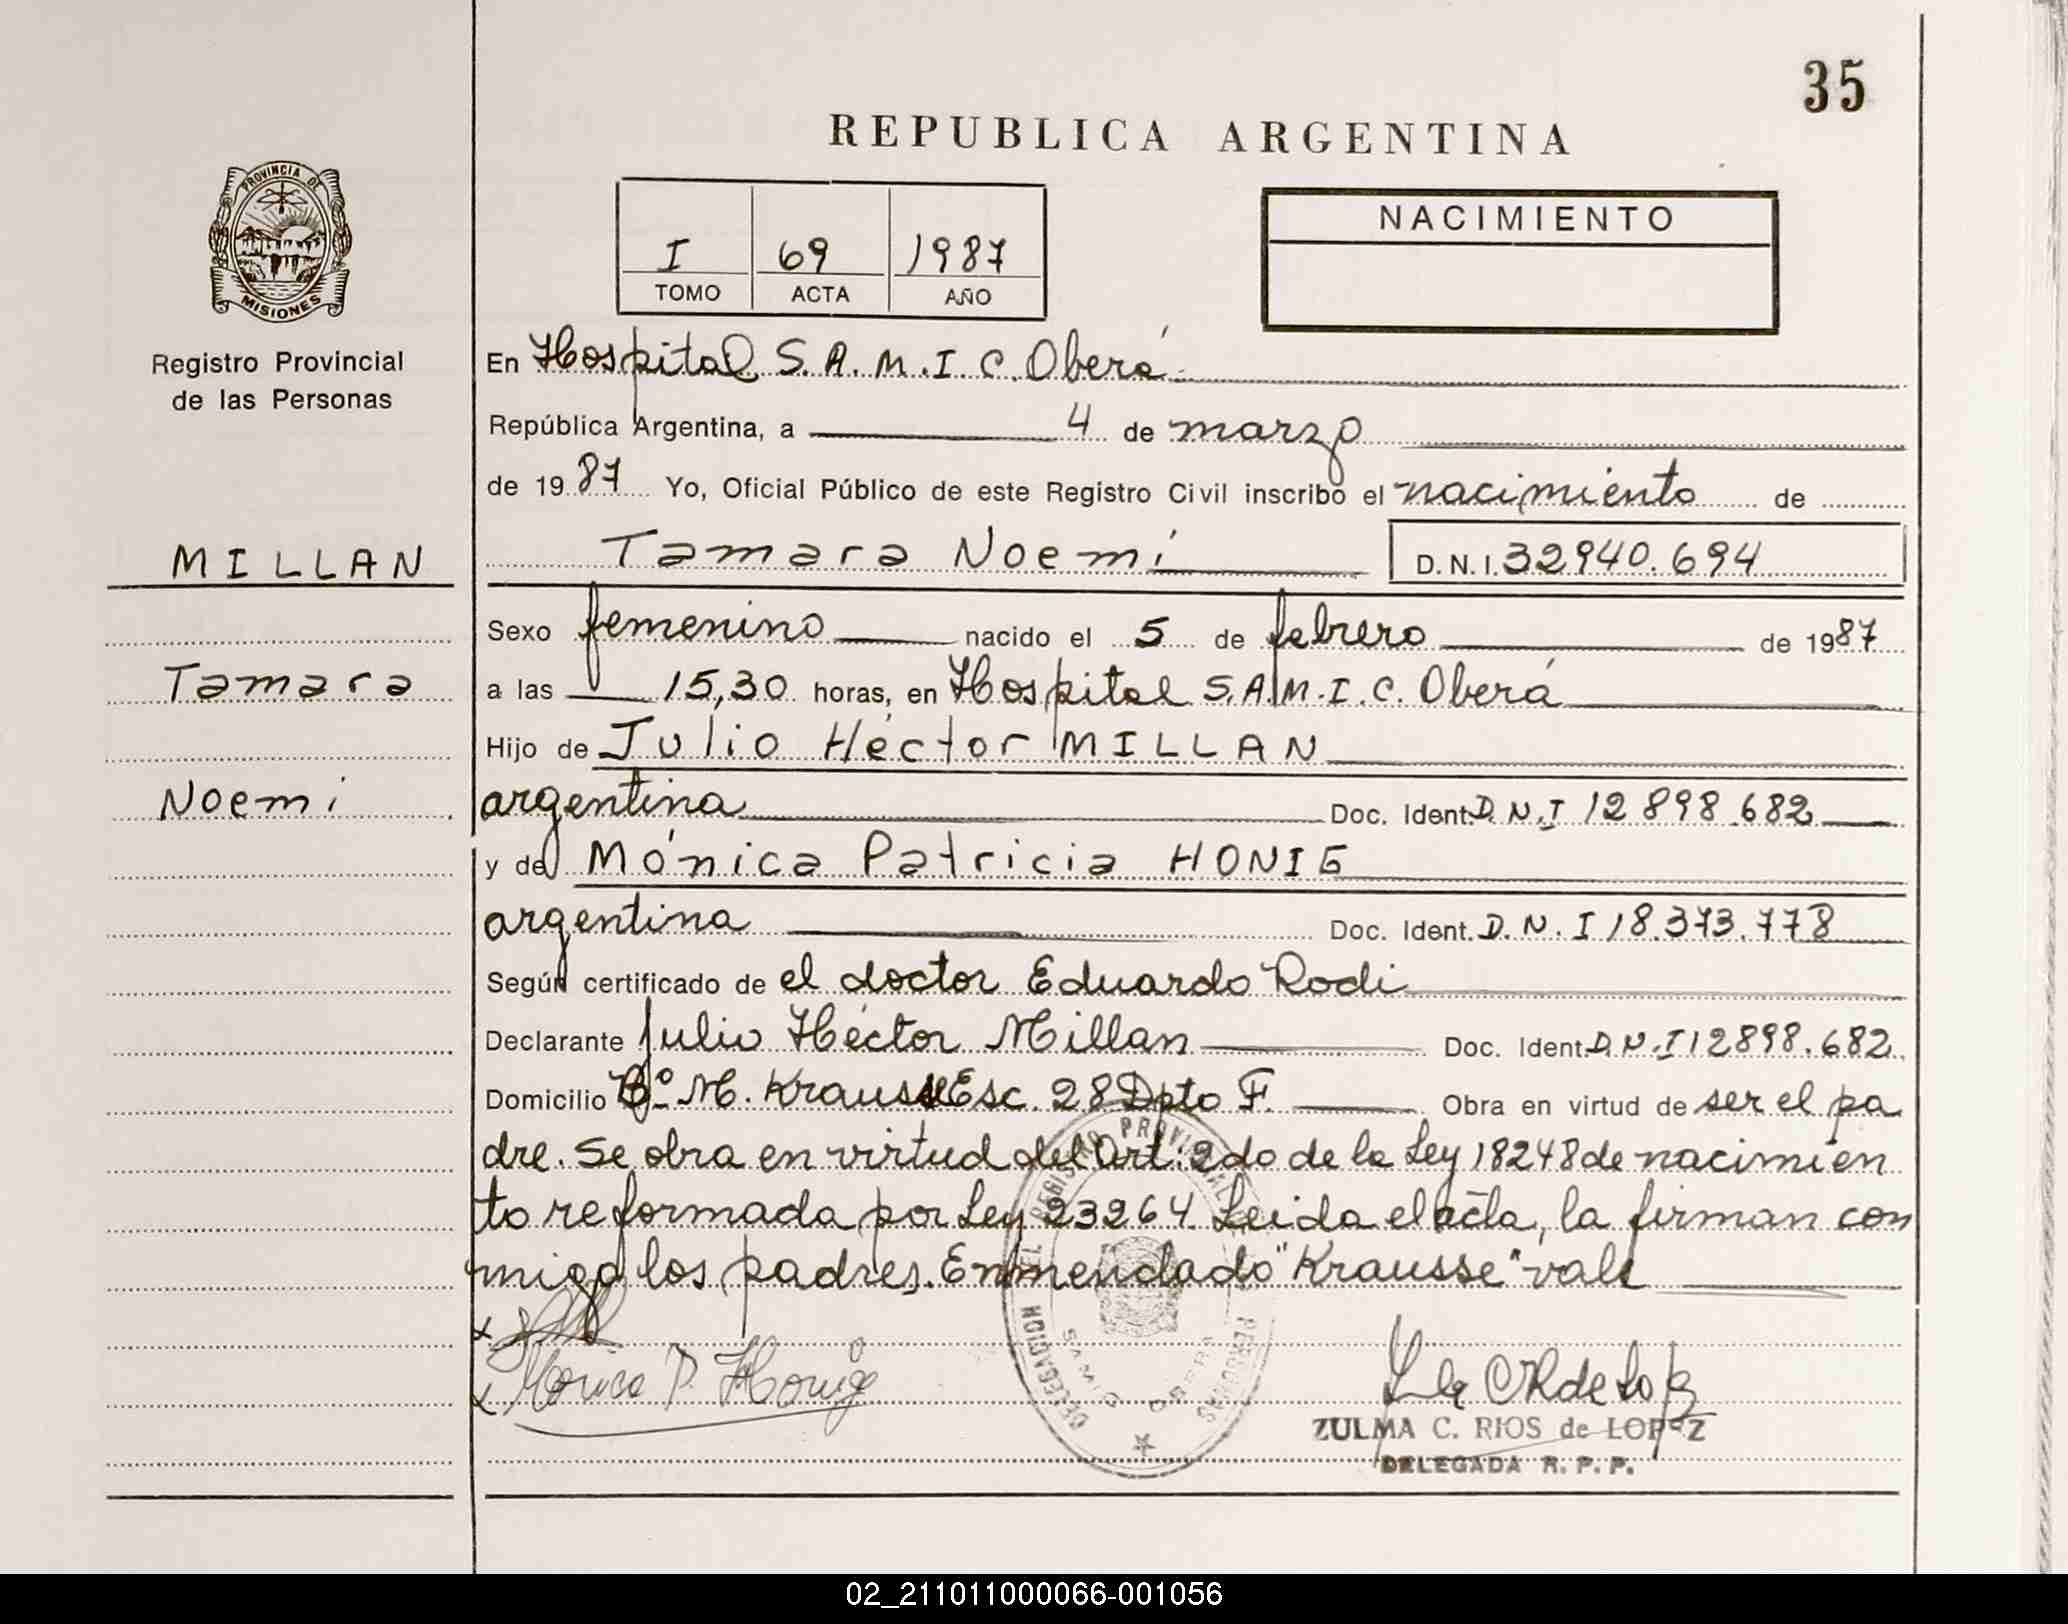 35
REPUBLICA ARGENTINA
PROVINCIA DE
MISIONES
Registro Provincial
de las Personas
I 69 1987
TOMO ACTA AÑO
NACIMIENTO
En Hospital S.A.M.I.C. Oberá
República Argentina, a 4 de marzo
de 1987 Yo, Oficial Público de este Registro Civil inscribo el nacimiento de
MILLAN
Tamara Noemí D.N.I. 32940.694
Sexo femenino nacido el 5 de febrero de 1987
Tamara
a las 15,30 horas, en Hospital S.A.M.I.C. Oberá
Hijo de Julio Héctor MILLAN
Noemí
argentina Doc. Ident. D.N.I 12898.682
y de Mónica Patricia HONIG
argentina Doc. Ident. D.N.I 18.373.778
Según certificado de el doctor Eduardo Rodi
Declarante Julio Héctor Millan Doc. Ident. D.N.I 12898.682
Domicilio Bº M. Krausse Esc. 28 Dpto F. Obra en virtud de ser el pa
dre. Se obra en virtud del Art. 2do de la Ley 18248 de nacimien
to reformada por Ley 23264. Leida el acta, la firman con
migo los padres. Enmendado "Krausse" vale
x
x Monica P. Honig
DELEGACION DEL REGISTRO PROVINCIAL PERSONAS
SAMIC OBERA
ZULMA C. RIOS de LOPEZ
DELEGADA R.P.P.
02_211011000066-001056